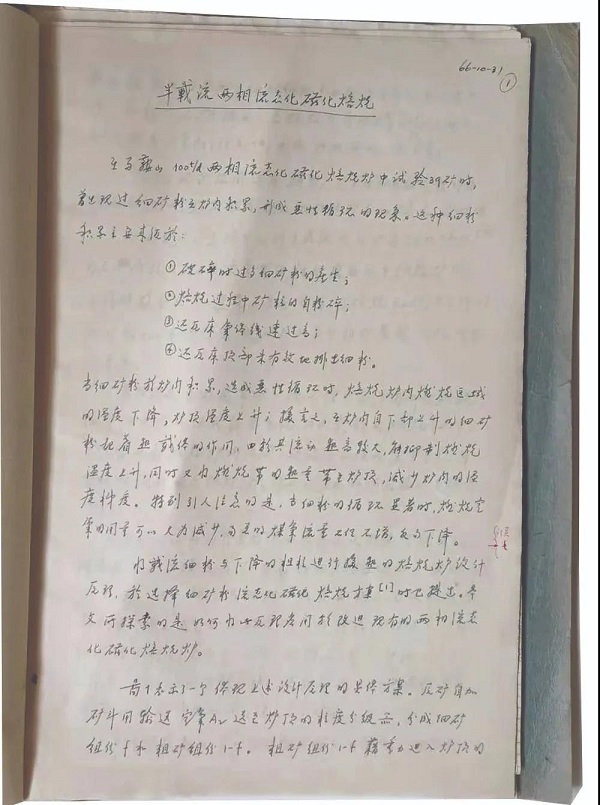 66-10-31
①
半载流两相流态化磁化焙烧
在马鞍山100t/d两相流态化磁化焙烧炉中试验39矿时,
曾出现过细矿粉在炉内积累,形成恶性循环的现象。这种细粉
积累主要来源於:
①破碎时过多细矿粉的产生;
②焙烧过程中矿粒的自粉碎;
③还原床气体线速过高;
④还原床顶部未有效地排出细粉。
当细矿粉於炉内积累,造成恶性循环时,焙烧炉内燃烧区域
的温度下降,炉顶温度上升;换言之,在炉内自下部上升的细矿
粉起着热载体的作用,由於其流动热高较大,能抑制燃烧
温度上升,同时又将燃烧带的热量带至炉顶,减少炉内的温
度梯度。特别引人注意的是,当细粉的循环显著时,燃烧空
气的用量可以大为减少,而总的煤气流量不但不增,反而下降。
将载流细粉与下降的粗粒进行换热的焙烧炉设计
原理,於选择细矿粉流态化磁化焙烧方案[1]时已提出。本
文所探索的是如何将此原理应用於改进现有的两相流态
化磁化焙烧炉。
图1表示了一个体现上述设计原理的具体方案。原矿自加
矿斗用输送空气A 送至炉顶的粒度分级 ,分成细矿
组份f和粗矿组份1-f。粗矿组份1-f藉重力进入炉顶的